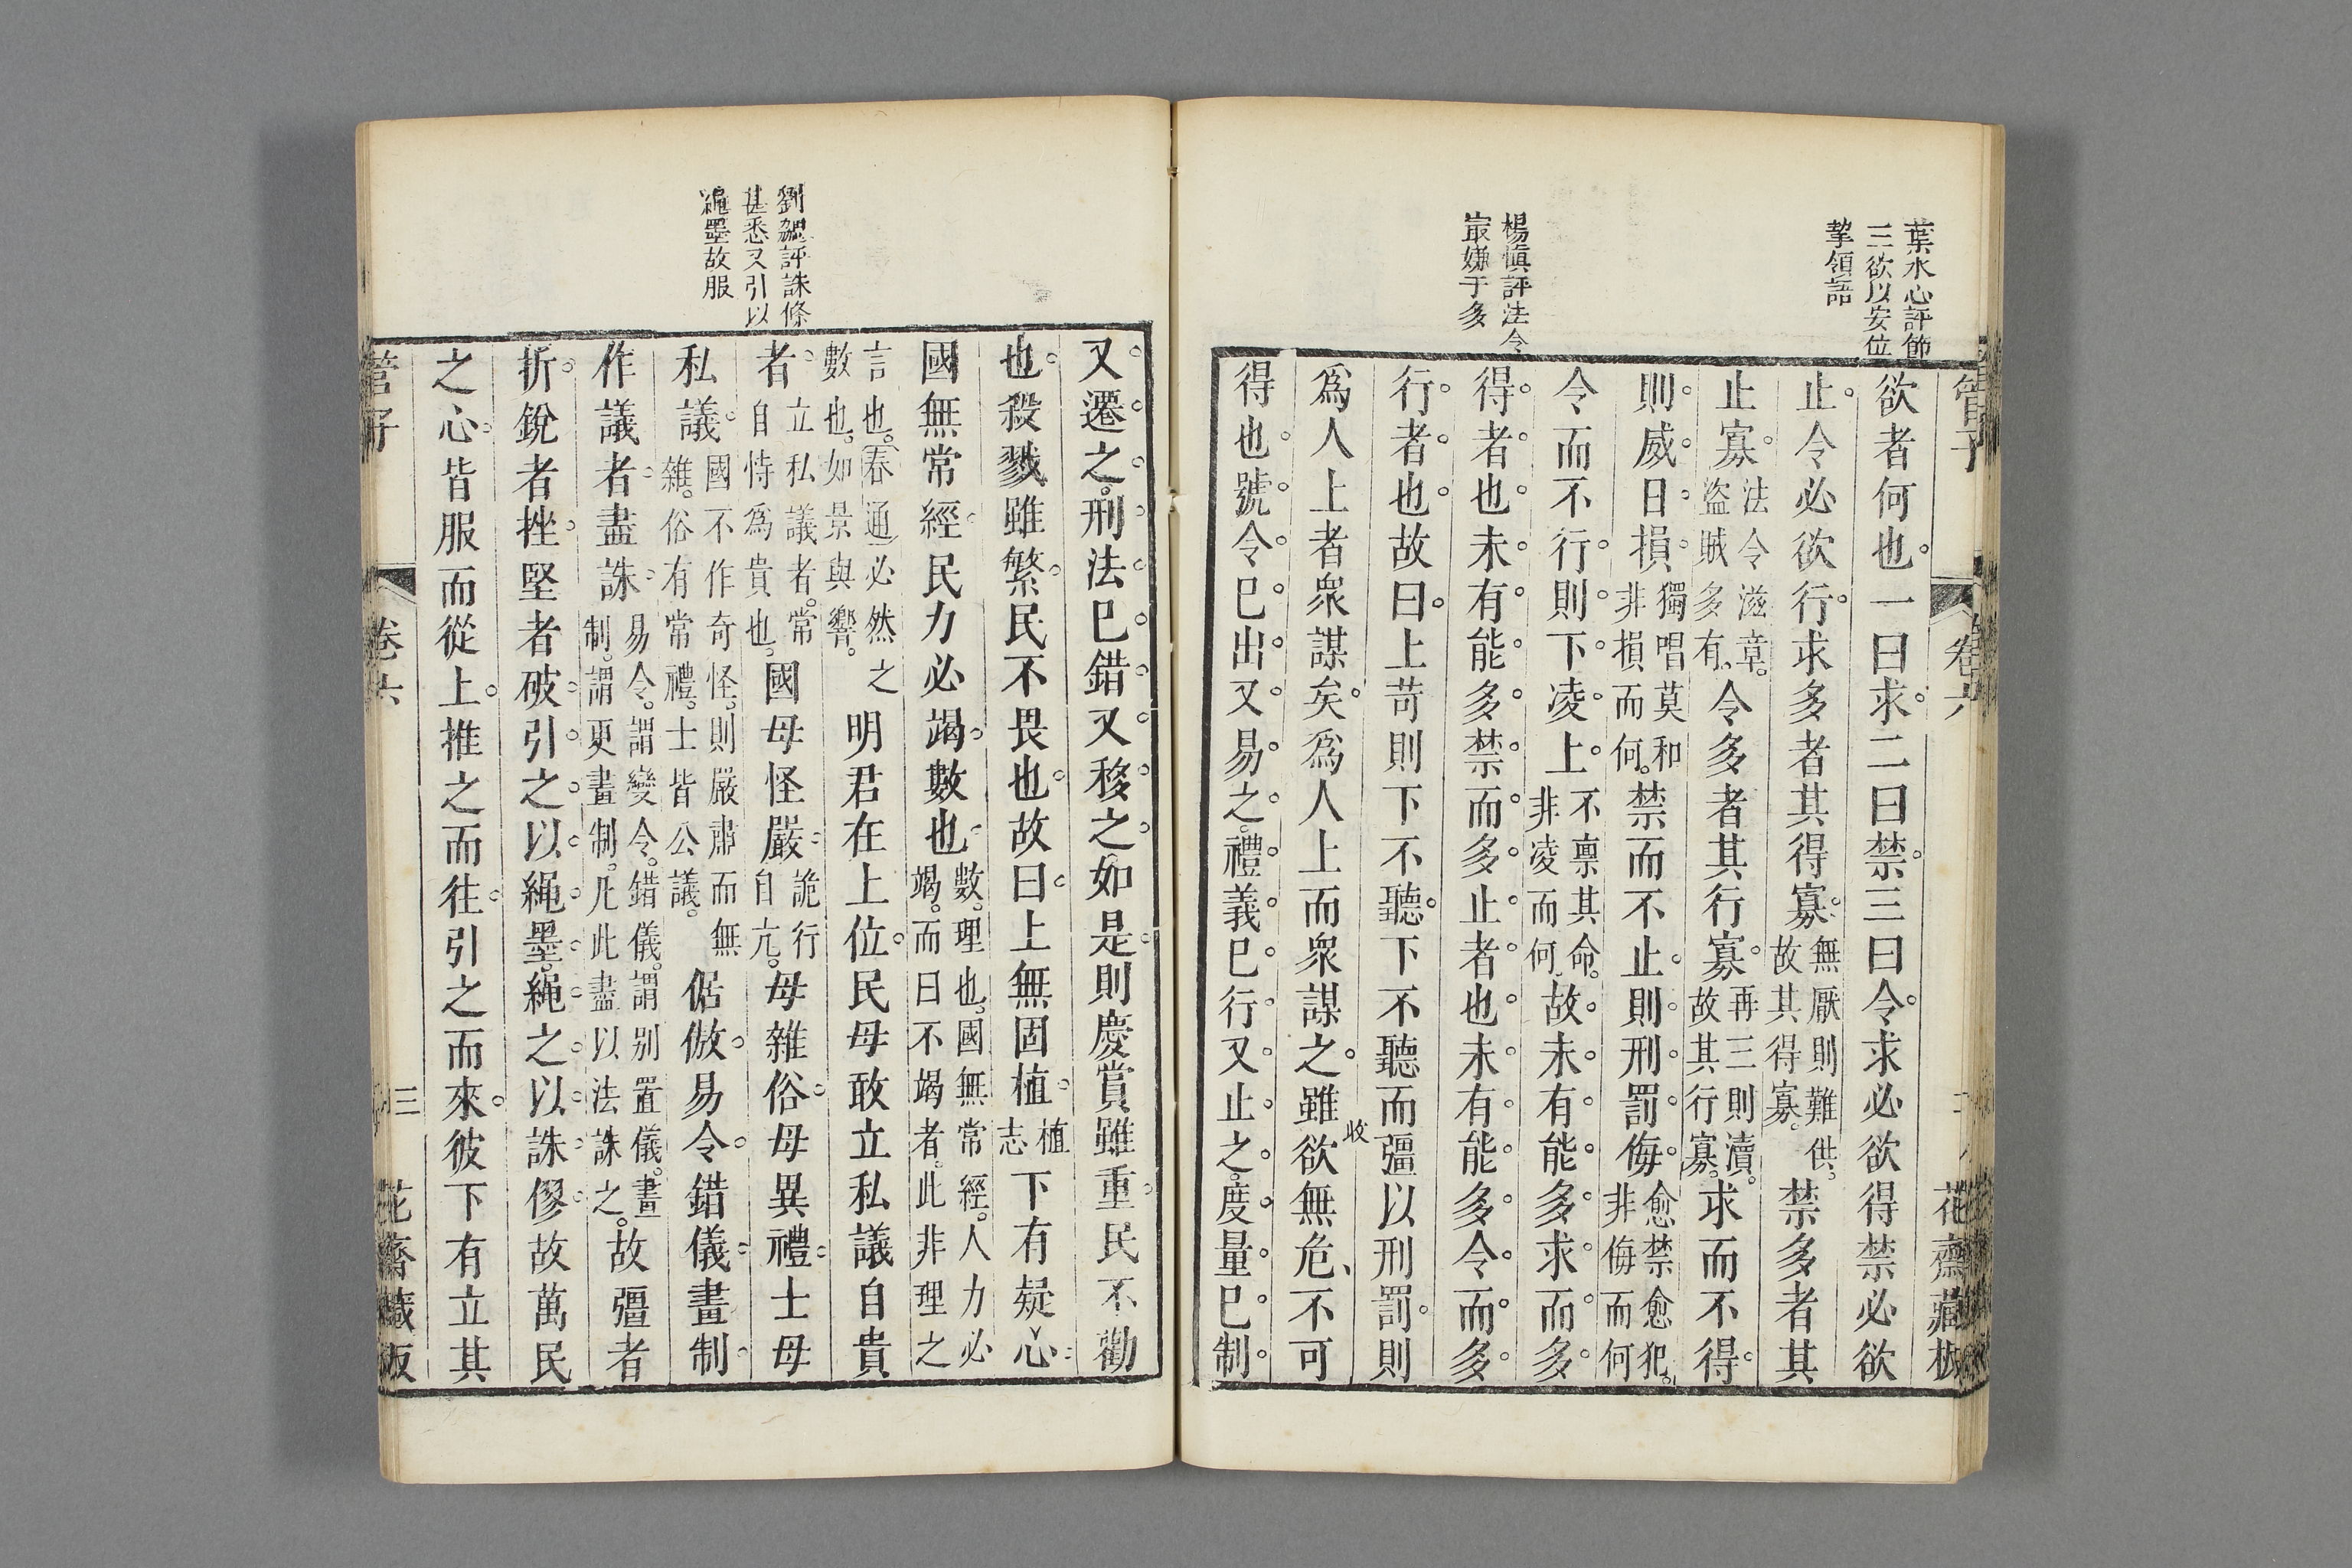 葉水心評節
三欲以安位
挈領語
楊慎評法令
最嫌于多
管子
卷六
花齋藏板
欲者何也一曰求二曰禁三曰令求必欲得禁必欲
止令必欲行求多者其得寡無厭則難供故其得寡禁多者其
止寡法令滋章盜賊多有令多者其行寡再三則瀆故其行寡求而不得
則威日損獨唱莫和非損而何禁而不止則刑罰侮愈禁愈犯非侮而何
令而不行則下凌上不禀其命非凌而何故未有能多求而多
得者也未有能多禁而多止者也未有能多令而多
行者也故曰上苛則下不聽下不聽而彊以刑罰則
收
爲人上者衆謀矣爲人上而衆謀之雖欲無危不可
得也號令已出又易之禮義已行又止之度量已制
劉勰評誅條
甚悉又引以
繩墨故服
又遷之刑法已錯又移之如是則慶賞雖重民不勸
也殺戮雖繁民不畏也故曰上無固植植志下有疑心
國無常經民力必竭數也數理也國無常經人力必竭而曰不竭者此非理之
言也春通必然之數也如景與響明君在上位民毋敢立私議自貴
者立私議者常自恃爲貴也國毋怪嚴詭行自亢毋雜俗毋異禮士毋
私議國不作奇怪則嚴肅而無雜俗有常禮士皆公議倨傲易令錯儀畫制
作議者盡誅易令謂變令錯儀謂别置儀畫制謂更畫制凡此盡以法誅之故彊者
折銳者挫堅者破引之以繩墨繩之以誅僇故萬民
之心皆服而從上推之而往引之而來彼下有立其
管子
卷六
三
花齋藏板